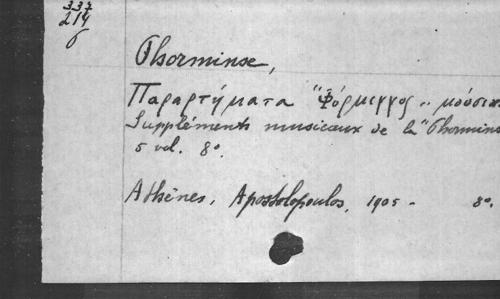 337
214
6
Phorminse,
Παραρτήματα "Φόρμιγγος„ μούσικα
Suppléments musicaux de la "Phormins
5 vol. 8°.
Athènes, Apostolopoulos, 1905 - 8°.